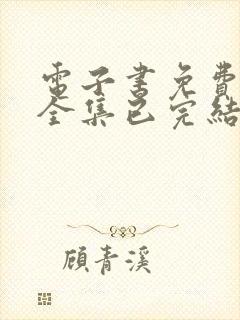 電子書免費
全集已完結
顧青溪